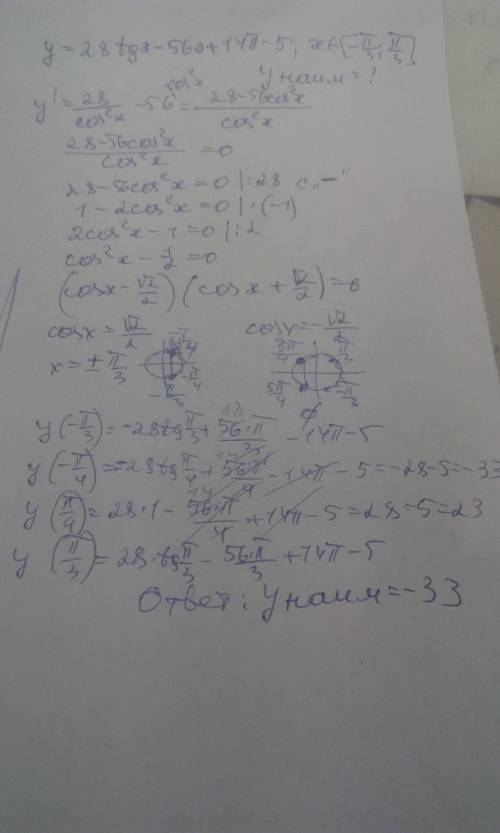 y = 28 tgx - 56x + 14π - 5; x∈[-π/3; π/3]
y наим = ?
y' = 28/cos²x - 56 = 28-56cos²x/cos²x
28-56cos²x/cos²x = 0
28-56cos²x = 0 |:28 с „-"
1 - 2cos²x = 0 |:(-1)
2cos²x - 1 = 0 |:2
cos²x - 1/2 = 0
(cosx - √2/2)(cosx + √2/2) = 0
cosx = √2/2 cosx = -√2/2
x = ± π/3
π/4 -π/4 -π/3
3π/4 π/3 5π/4 -π/3
∅
y(-π/3) = -28tgπ/3 + 56·π/3 - 14π - 5
y(-π/4) = -28tgπ/4 + 56·π/4 - 14π - 5 = -28-5 = -33
y(π/4) = 28·1 - 56·π/4 + 14π - 5 = 28-5 = 23
y(π/3) = 28·tgπ/3 - 56·π/3 + 14π - 5
Ответ: y наим = -33